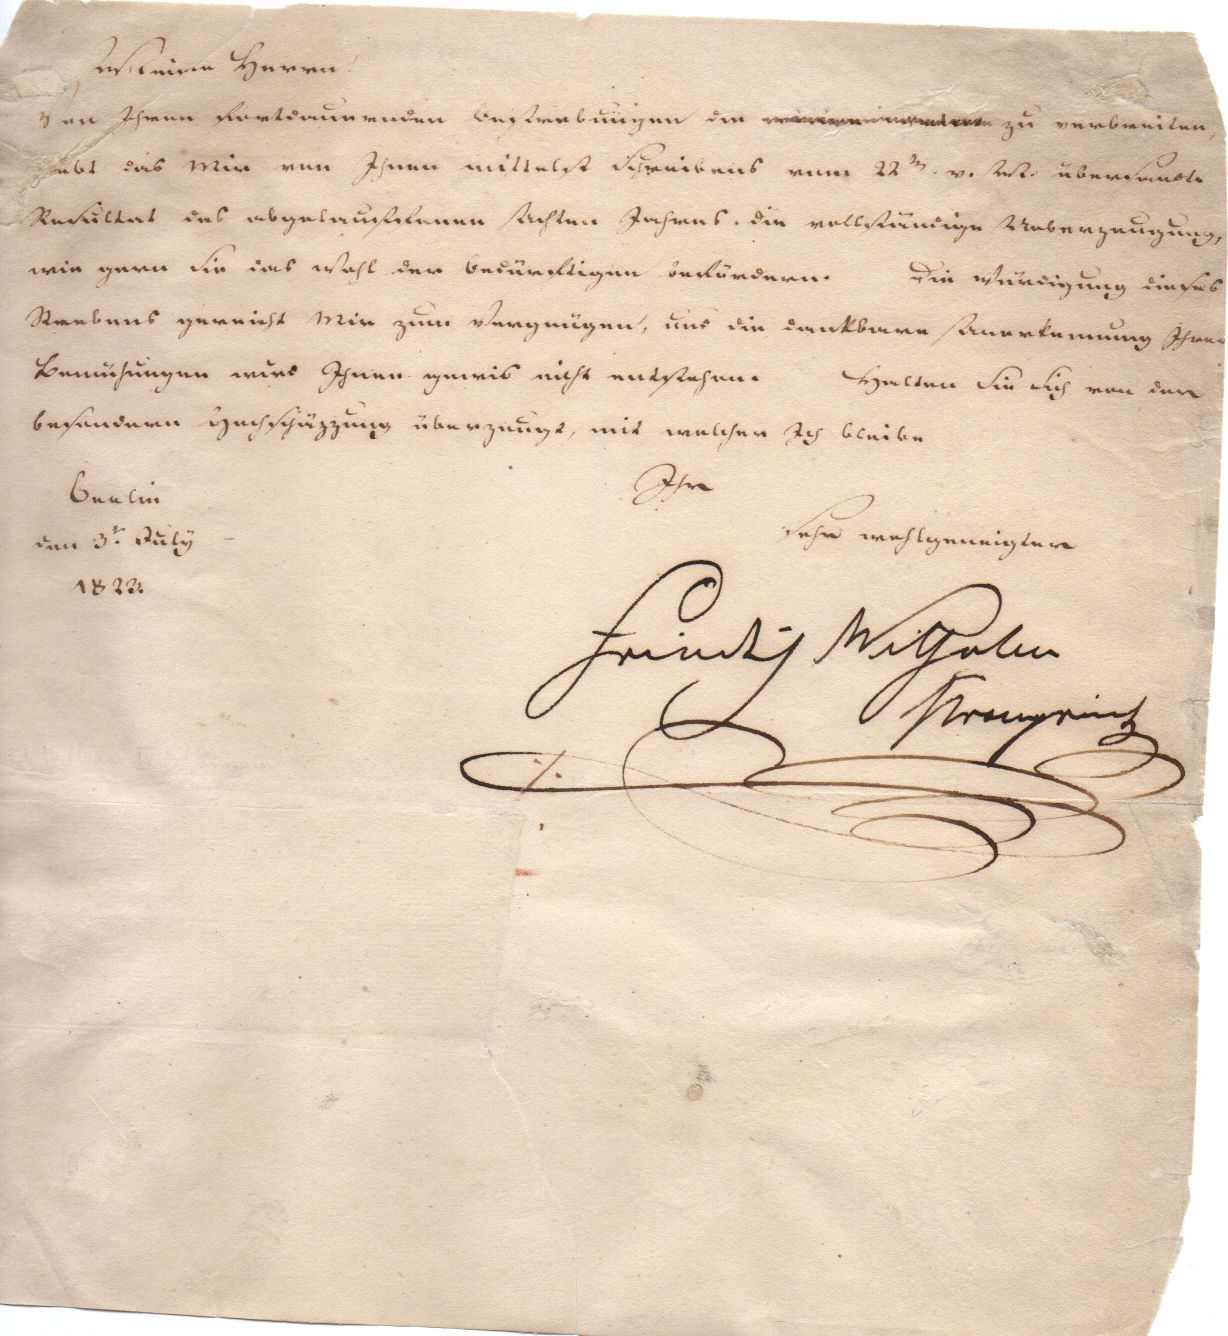 Meine Herrn!
Von Ihren fortdaurenden Bestrebungen die zu verbreiten,
giebt das Mir von Ihnen mittelst Schreibens vom 22ten v. Mts. übersandte
Resultat des abgelauffenen achten Jahres die vollständige Ueberzeugung,
wie gern Sie das Wohl der Bedürftigen befördern. Die Würdigung dieses
Strebens gereicht Mir zum Vergnügen, und die dankbare Anerkennung Ihrer
Bemühungen wird Ihnen gewis nicht entstehen. Halten Sie Sich von der
besondern Hochschäzzung überzeugt, mit welcher Ich bleibe
Ihr
Berlin
sehr wohlgeneigter
den 3t. July
1822.
Friedrich Wilhelm
Kronprintz